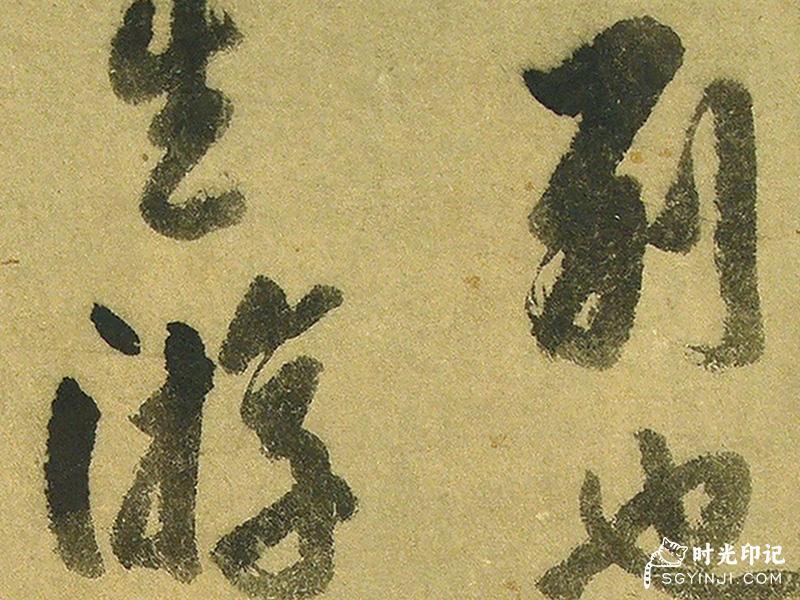 别也
生游
时光印记
SGYINJI.COM